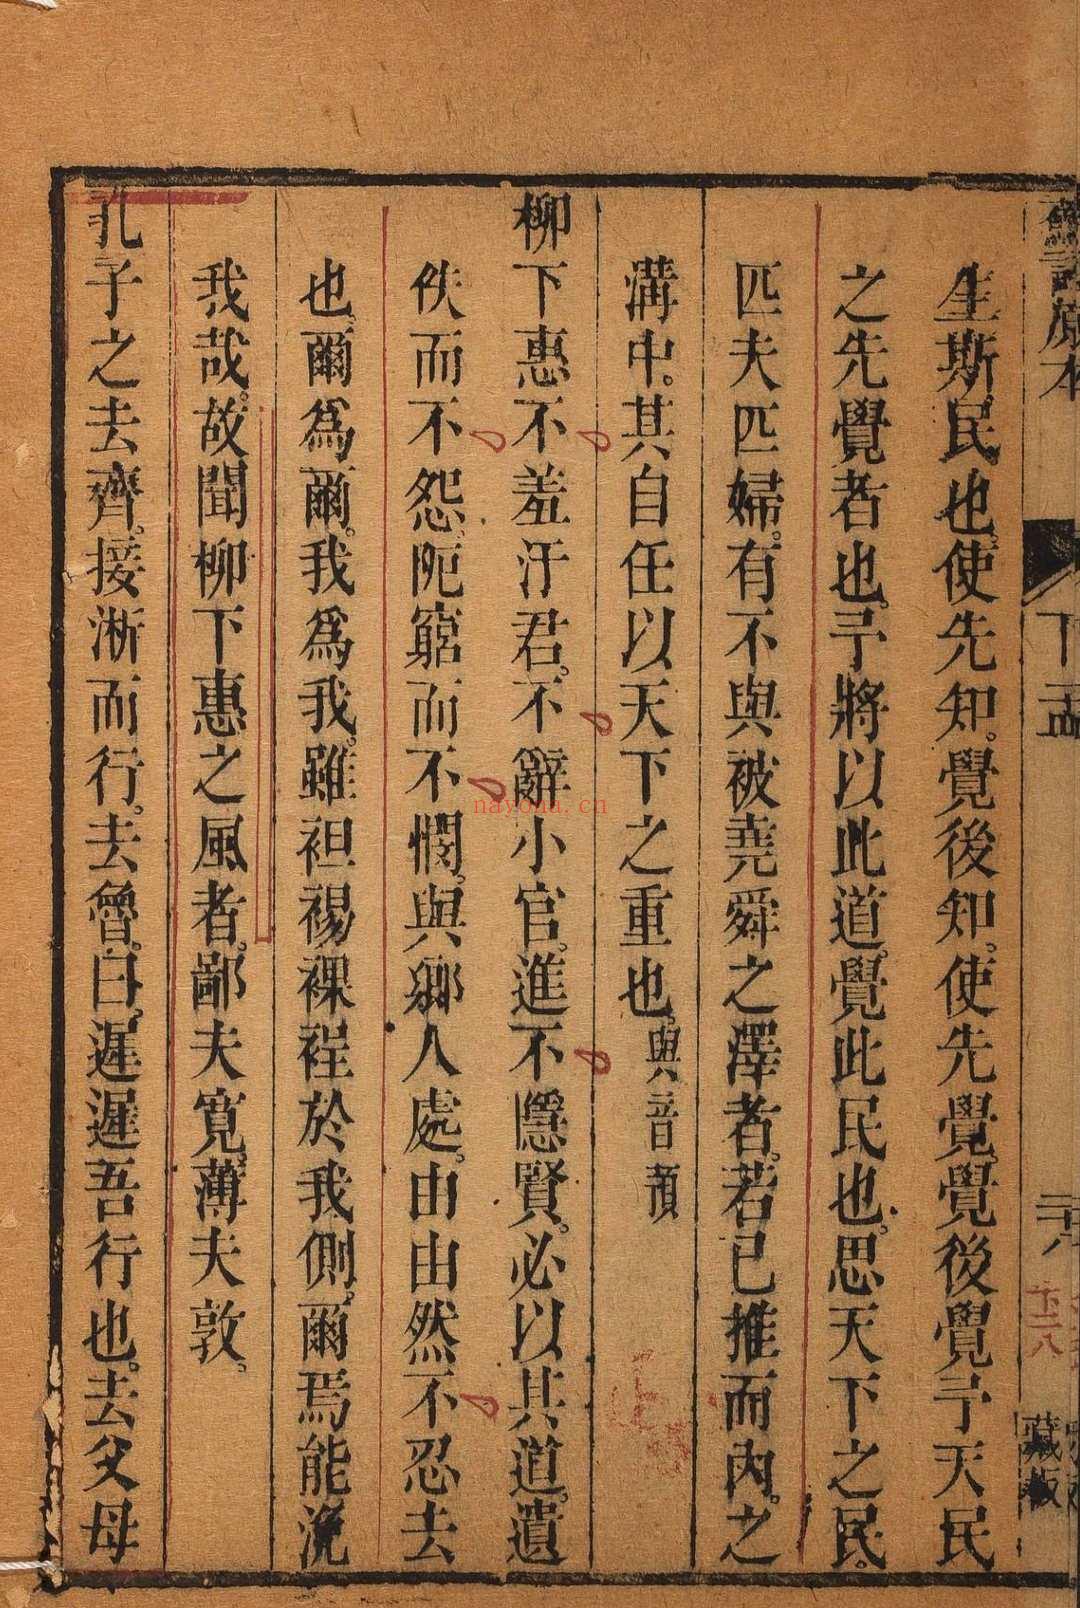 生斯民也使先知覺後知使先覺覺後覺予天民
之先覺者也予將以此道覺此民也思天下之民
匹夫匹婦有不與被堯舜之澤者若已推而內之
溝中其自任以天下之重也與音預
柳下惠不羞汙君不辭小官進不隱賢必以其道遺
佚而不怨阨窮而不憫與鄉人處由由然不忍去
也爾為爾我為我雖袒裼裸裎於我側爾焉能浼
我哉故聞柳下惠之風者鄙夫寬薄夫敦
孔子之去齊接淅而行去魯曰遲遲吾行也去父母
原本
下孟
藏板
nayona.cn